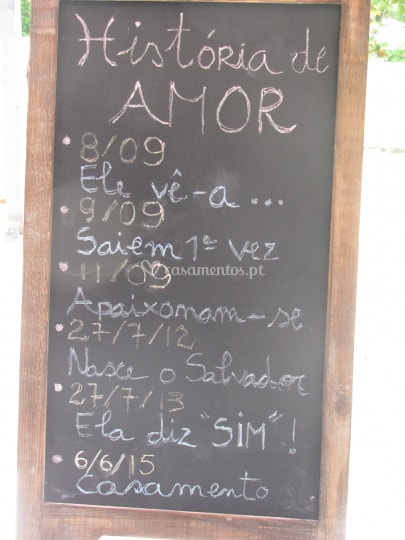 História de
AMOR
8/09
Ele vê-a...
9/09
Saiem 1ª vez
11/09
casamentos.pt
Apaixonam-se
27/7/12
Nasce o Salvador
27/7/13
Ela diz "SIM"!
6/6/15
Casamento